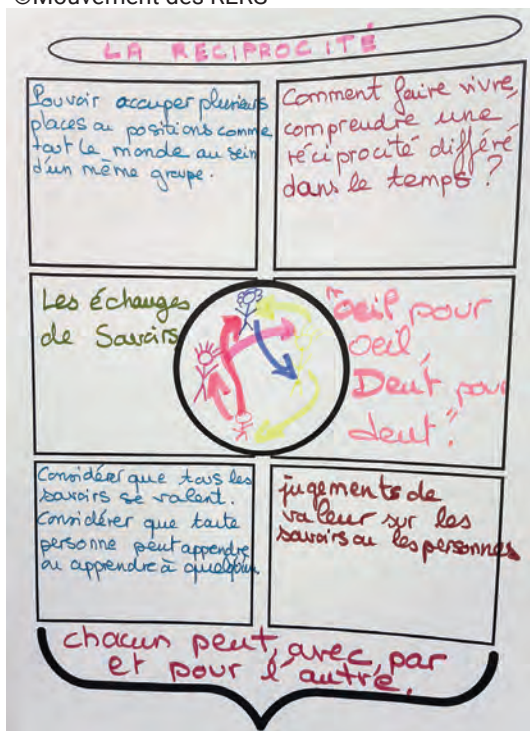 ©Mouvement des RERS
LA RÉCIPROCITÉ
Pouvoir occuper plusieurs
places ou positions comme
tout le monde au sein
d'un même groupe.
Comment faire vivre,
comprendre une
réciprocité différé
dans le temps ?
Les échanges
de Savoirs
"oeil pour
oeil,
Dent pour
dent."
Considérer que tous les
savoirs se valent.
Considérer que toute
personne peut apprendre
ou apprendre à quelqu'un
jugements de
valeur sur les
savoirs ou les personnes
chacun peut, avec, par
et pour l'autre.